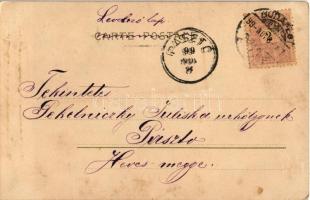 Levelező lap
CARTE POST
BUDAPEST
99
Tekintetes
Gekelniczky Juliska urhölgynek
Pásztó
Heves-megye.